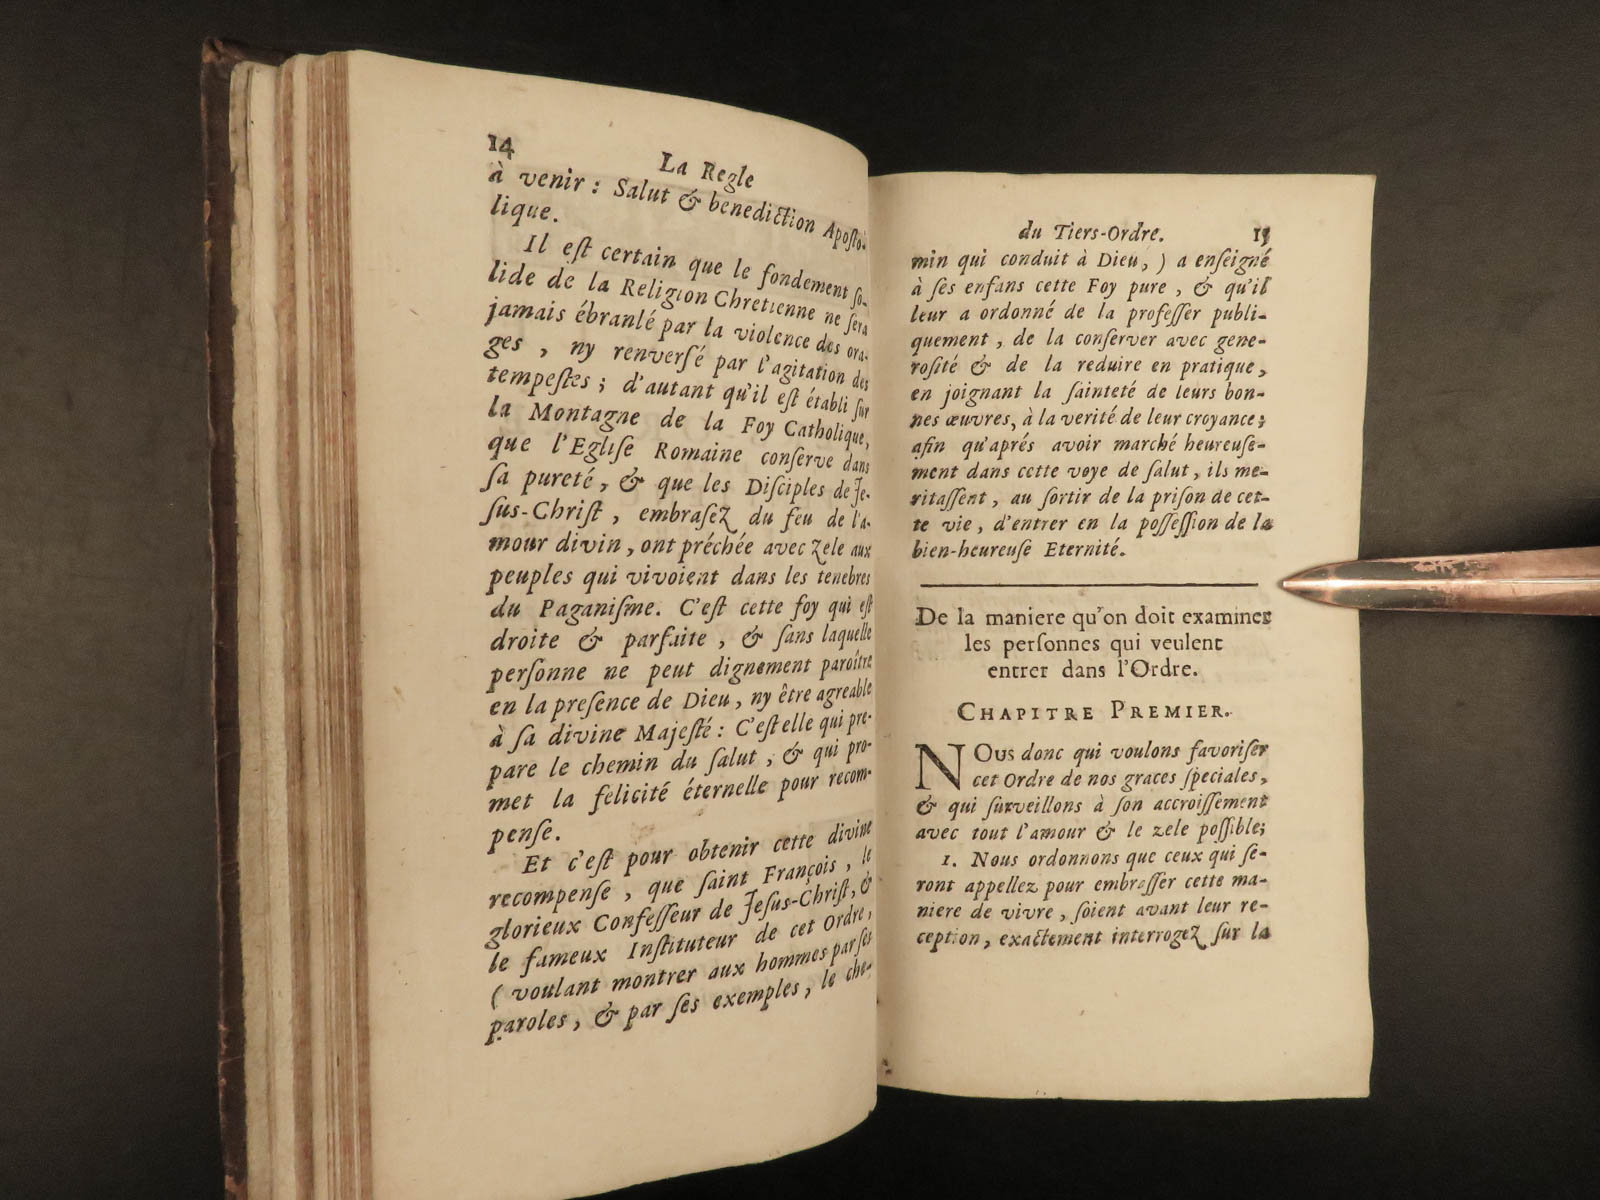 14
La Regle
à venir : Salut & benediction Aposto-
lique.
Il eſt certain que le fondement ſo-
lide de la Religion Chretienne ne ſera
jamais ébranlé par la violence des ora-
ges , ny renverſé par l'agitation des
tempeſtes ; d'autant qu'il eſt établi ſur
la Montagne de la Foy Catholique,
que l'Egliſe Romaine conſerve dans
ſa pureté , & que les Diſciples de Je-
ſus-Chriſt , embraſez du feu de l'a-
mour divin , ont préchée avec zele aux
peuples qui vivoient dans les tenebres
du Paganiſme. C'eſt cette foy qui eſt
droite & parfaite , & ſans laquelle
perſonne ne peut dignement paroître
en la preſence de Dieu , ny être agreable
à ſa divine Majeſté : C'eſt elle qui pre-
pare le chemin du ſalut , & qui pro-
met la felicité éternelle pour recom-
penſe.
Et c'eſt pour obtenir cette divine
recompenſe , que ſaint François , le
glorieux Confeſſeur de Jeſus-Chriſt, &
le fameux Inſtituteur de cet Ordre,
( voulant montrer aux hommes par ſes
paroles , & par ſes exemples , le che-
du Tiers-Ordre. 15
min qui conduit à Dieu, ) a enſeigné
à ſes enfans cette Foy pure , & qu'il
leur a ordonné de la profeſſer publi-
quement , de la conſerver avec gene-
roſité & de la reduire en pratique,
en joignant la ſainteté de leurs bon-
nes œuvres, à la verité de leur croyance;
afin qu'aprés avoir marché heureuſe-
ment dans cette voye de ſalut , ils me-
ritaſſent , au ſortir de la priſon de cet-
te vie , d'entrer en la poſſeſſion de la
bien-heureuſe Eternité.
De la maniere qu'on doit examiner
les perſonnes qui veulent
entrer dans l'Ordre.
CHAPITRE PREMIER.
NOUS donc qui voulons favoriſer
cet Ordre de nos graces ſpeciales,
& qui ſurveillons à ſon accroiſſement
avec tout l'amour & le zele poſſible;
1. Nous ordonnons que ceux qui ſe-
ront appellez pour embraſſer cette ma-
niere de vivre , ſoient avant leur re-
ception, exactement interrogez ſur la